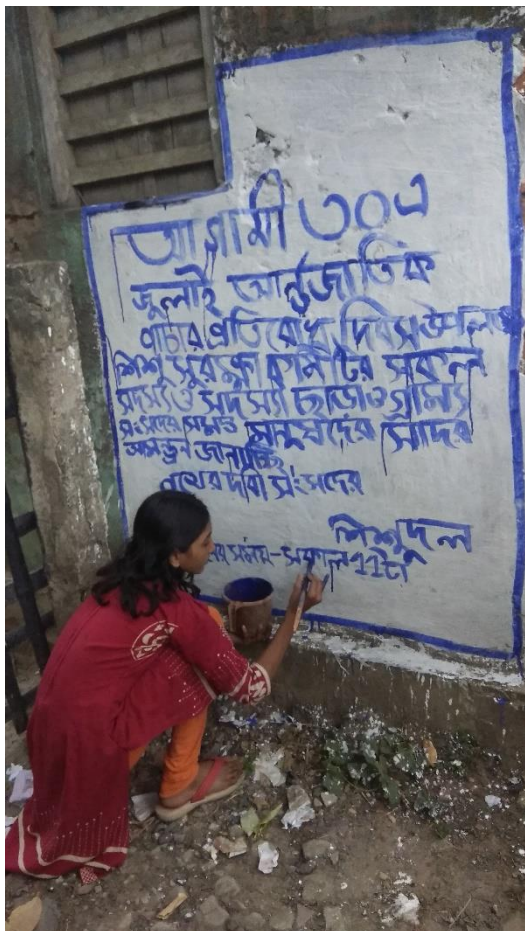 আগামী ৩০এ
জুলাই আর্ন্তজাতিক
পাচার প্রতিরোধ দিবস উপলক্ষে
শিশু সুরক্ষা কমিটির সকল
সদস্য ও সদস্যা ছাড়াও গ্রাম্য
সংসদের সমস্ত মানুষদের সাদর
আমন্ত্রন জানাচ্ছি
পথের দাবী সংসদের
শিশুদল
সময়-সকাল ১১টা